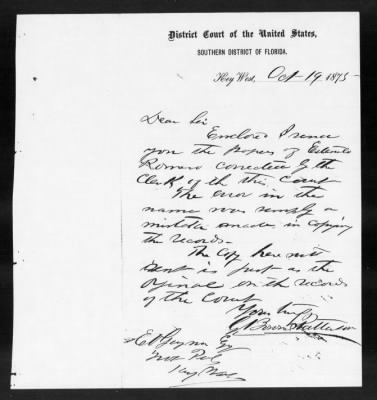 District Court of the United States,
SOUTHERN DISTRICT OF FLORIDA.
Key West, Oct 19 1875
Dear Sir
Enclosed I
you the papers of
Romero corrected by the
Clerk of the this Court
The error in the
name was simply a
mistake made in copying
the records.
The Copy here
sent is just as the
original on the records
of the Court
Yours truly
G Bowne Patterson
Esq